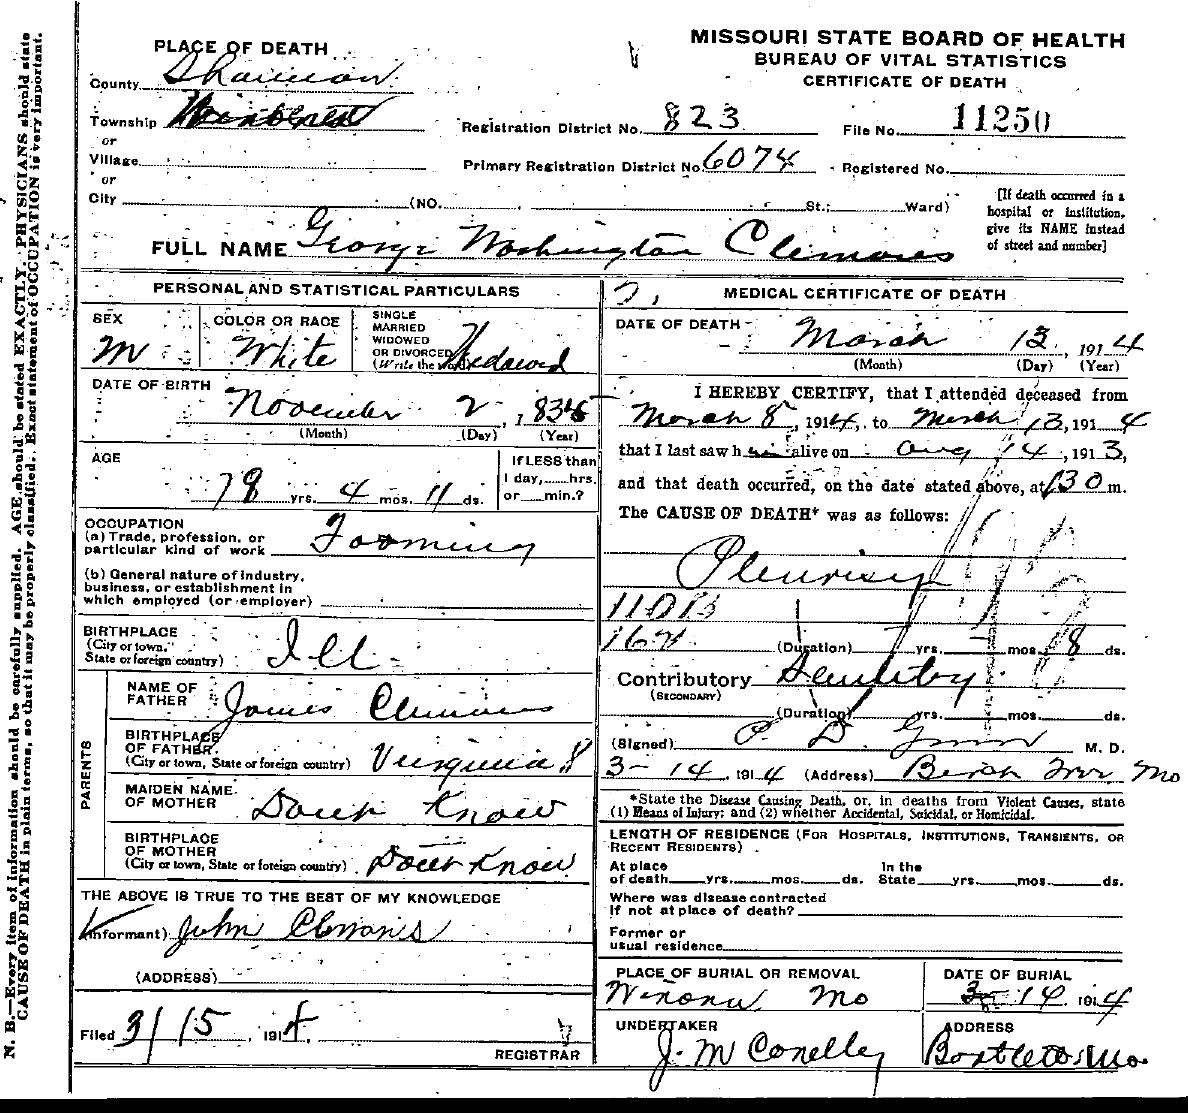 MISSOURI STATE BOARD OF HEALTH
BUREAU OF VITAL STATISTICS
CERTIFICATE OF DEATH
PLACE OF DEATH
County Shannon
Township
or
Village
or
City (NO. St.; Ward)
Registration District No. 823 File No. 11250
Primary Registration District No. 6074 Registered No.
[If death occurred in a
hospital or institution,
give its NAME instead
of street and number]
FULL NAME George Washington Clemons
PERSONAL AND STATISTICAL PARTICULARS
SEX
M
COLOR OR RACE
White
SINGLE
MARRIED
WIDOWED
OR DIVORCED
(Write the word)
DATE OF BIRTH
November 2, 1835
(Month) (Day) (Year)
AGE
78 yrs. 4 mos. 11 ds.
If LESS than
1 day,.....hrs.
or.....min.?
OCCUPATION
(a) Trade, profession, or
particular kind of work Farming
(b) General nature of industry,
business, or establishment in
which employed (or employer)
BIRTHPLACE
(City or town,
State or foreign country) Ill
PARENTS
NAME OF
FATHER James Clemons
BIRTHPLACE
OF FATHER
(City or town, State or foreign country) Virginia
MAIDEN NAME
OF MOTHER Dont Know
BIRTHPLACE
OF MOTHER
(City or town, State or foreign country) Dont Know
THE ABOVE IS TRUE TO THE BEST OF MY KNOWLEDGE
(Informant) John Clemons
(ADDRESS)
Filed 3/15, 1914,
REGISTRAR
MEDICAL CERTIFICATE OF DEATH
DATE OF DEATH
March 13, 1914
(Month) (Day) (Year)
I HEREBY CERTIFY, that I attended deceased from
March 8, 1914, to March 13, 1914
that I last saw h alive on Aug 14, 1913,
and that death occurred, on the date stated above, at 130 m.
The CAUSE OF DEATH* was as follows:
Pleurisy
110B
162
(Duration) yrs. mos. 8 ds.
Contributory
(SECONDARY)
(Duration) yrs. mos. ds.
(Signed) P. D. M. D.
3-14, 1914 (Address) Mo
*State the Disease Causing Death, or, in deaths from Violent Causes, state
(1) Means of Injury; and (2) whether Accidental, Suicidal, or Homicidal.
LENGTH OF RESIDENCE (For Hospitals, Institutions, Transients, or
Recent Residents)
At place In the
of death yrs. mos. ds. State yrs. mos. ds.
Where was disease contracted
if not at place of death?
Former or
usual residence
PLACE OF BURIAL OR REMOVAL
Winona Mo
DATE OF BURIAL
3-14 1914
UNDERTAKER
J. M Conelley
ADDRESS
Bartlett Mo.
N. B.—Every item of information should be carefully supplied. AGE should be stated EXACTLY. PHYSICIANS should state
CAUSE OF DEATH in plain terms, so that it may be properly classified. Exact statement of OCCUPATION is very important.